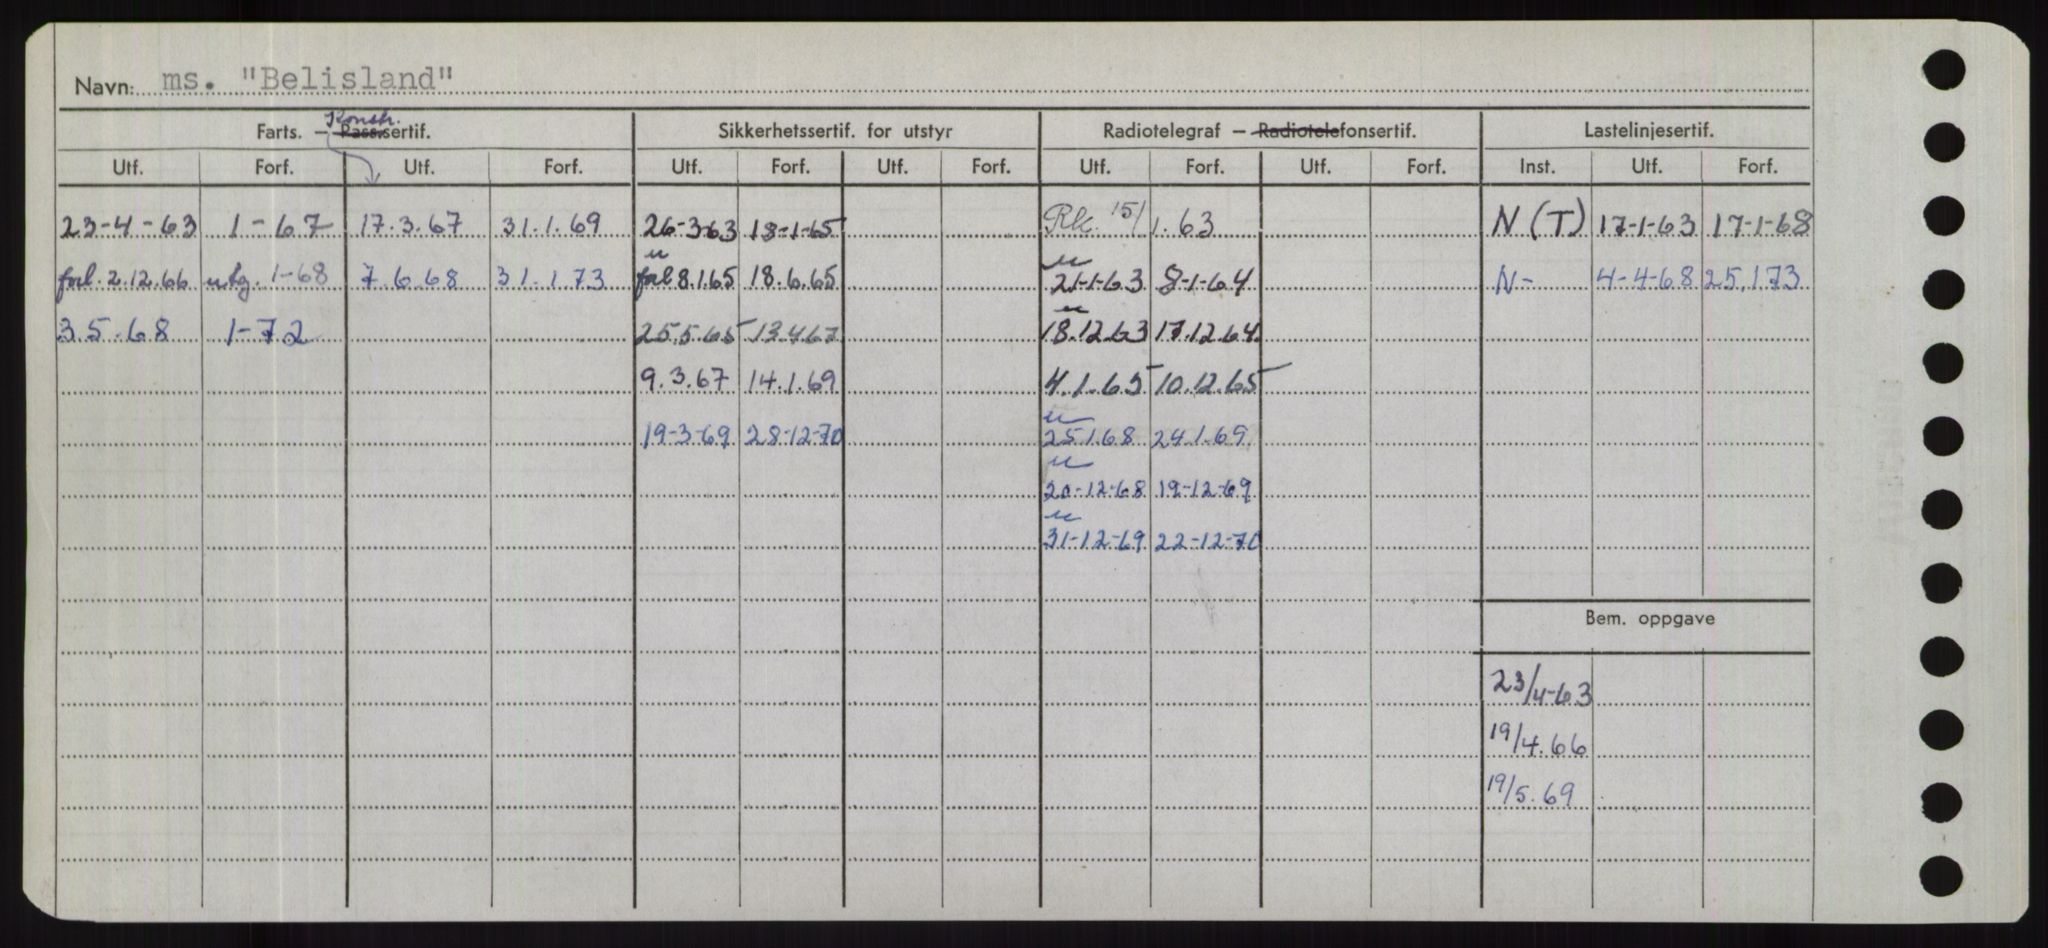 Navn: ms. "Belisland"
Konstr.
Farts. – Pass.sertif. Sikkerhetssertif. for utstyr Radiotelegraf – Radiotelefonsertif. Lastelinjesertif.
Utf. Forf. Utf. Forf. Utf. Forf. Utf. Forf. Utf. Forf. Utf. Forf. Inst. Utf. Forf.
23-4-63 1-67 17.3.67 31.1.69 26-3-63 18-1-65 Rk. 15/1.63 N (T) 17-1-63 17-1-68
u u
forl. 2.12.66 utg. 1-68 7.6.68 31.1.73 forl 8.1.65 18.6.65 21-1-63 8-1-64 N- 4-4-68 25.1.73
u
3.5.68 1-72 25.5.65 13.4.67 18.12.63 17.12.64
9.3.67 14.1.69 4.1.65 10.12.65
u
19-3-69 28-12-70 25.1.68 24.1.69
u
20-12-68 19-12-69
u
31-12-69 22-12-70
Bem. oppgave
23/4-63
19/4.66
19/5.69